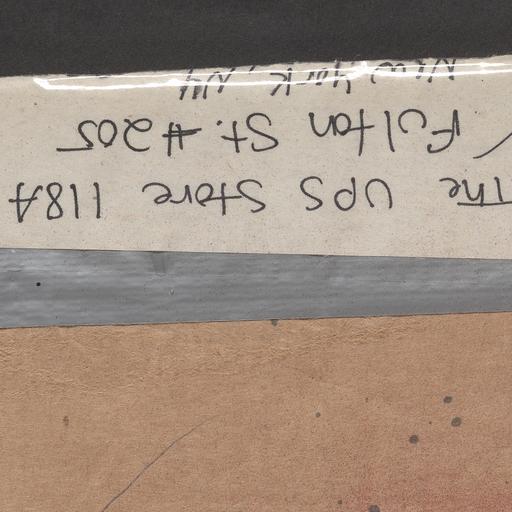 The UPS Store 118A
Fulton St. #205
New York, NY